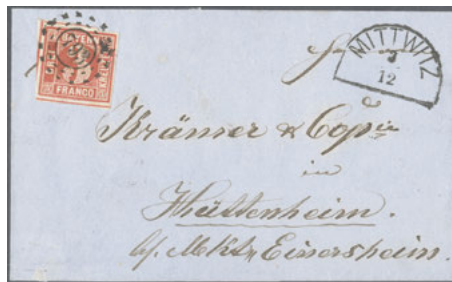 BAYERN
FRANCO
MITTWITZ
12
Krämer & Comp
in
Hüttenheim.
b/. Mkt Einersheim.